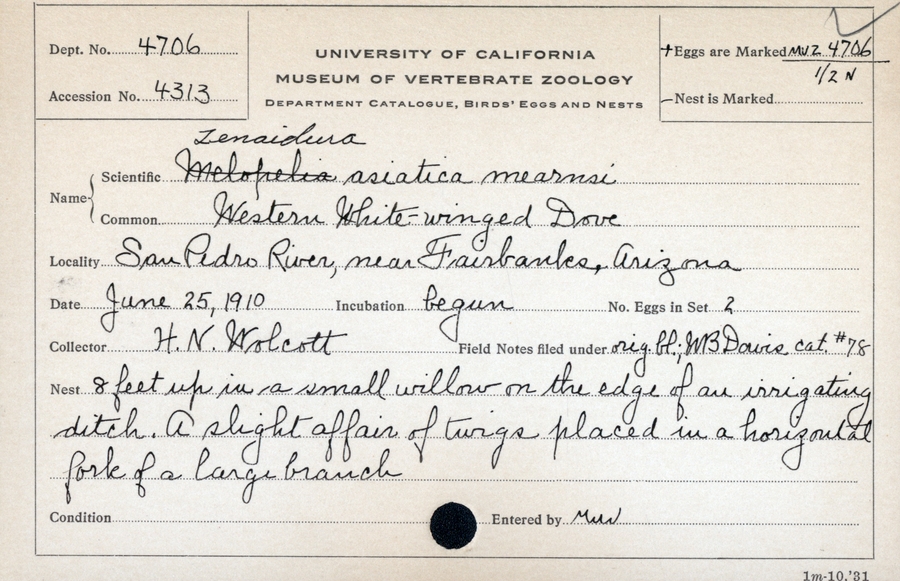 Dept. No. 4706
Accession No. 4313
UNIVERSITY OF CALIFORNIA
MUSEUM OF VERTEBRATE ZOOLOGY
DEPARTMENT CATALOGUE, BIRDS' EGGS AND NESTS
+Eggs are Marked MVZ 4706
1/2 N
–Nest is Marked
Zenaidura
Name { Scientific Melopelia asiatica mearnsi
Common Western White-winged Dove
Locality San Pedro River, near Fairbanks, Arizona
Date June 25, 1910 Incubation begun No. Eggs in Set 2
Collector H. N. Wolcott Field Notes filed under orig. bl.; WB Davis cat. #78
Nest 8 feet up in a small willow on the edge of an irrigating
ditch. A slight affair of twigs placed in a horizontal
fork of a large branch
Condition Entered by
1m-10,'31